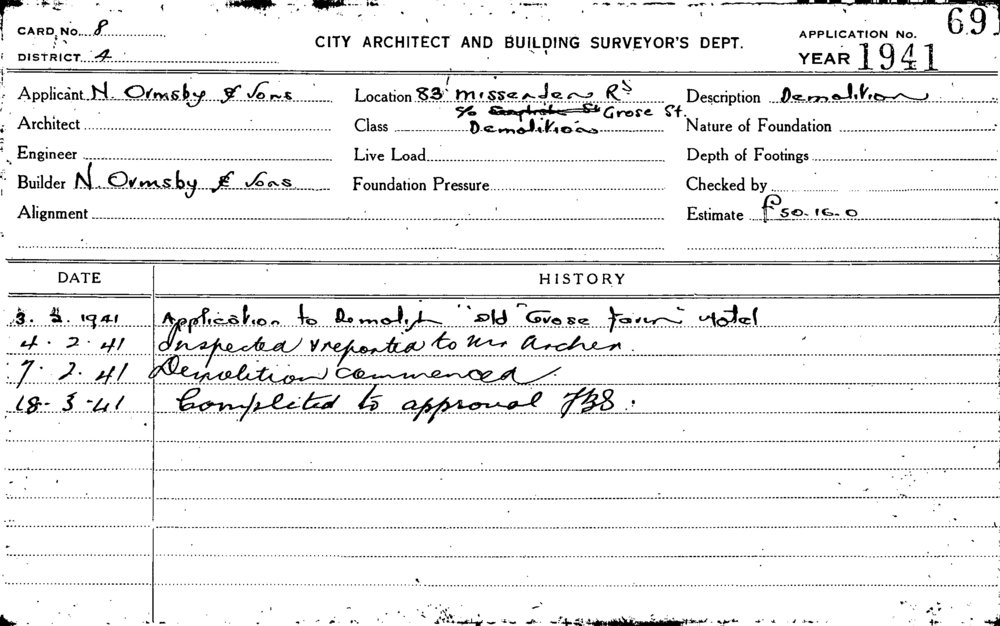 CARD No. 8
DISTRICT 4
CITY ARCHITECT AND BUILDING SURVEYOR'S DEPT.
APPLICATION No. 691
YEAR 1941
Applicant N. Ormsby & Sons
Location 83 Missenden Rd
c/o Grose St.
Description Demolition
Architect
Class Demolition
Nature of Foundation
Engineer
Live Load
Depth of Footings
Builder N Ormsby & Sons
Foundation Pressure
Checked by
Alignment
Estimate £50-16-0
DATE HISTORY
3. 2. 1941 Application to Demolish "old "Grose Farm" Hotel
4. 2. 41 Inspected & reported to Mr Archer.
7. 2. 41 Demolition commenced.
18-3-41 Completed to approval